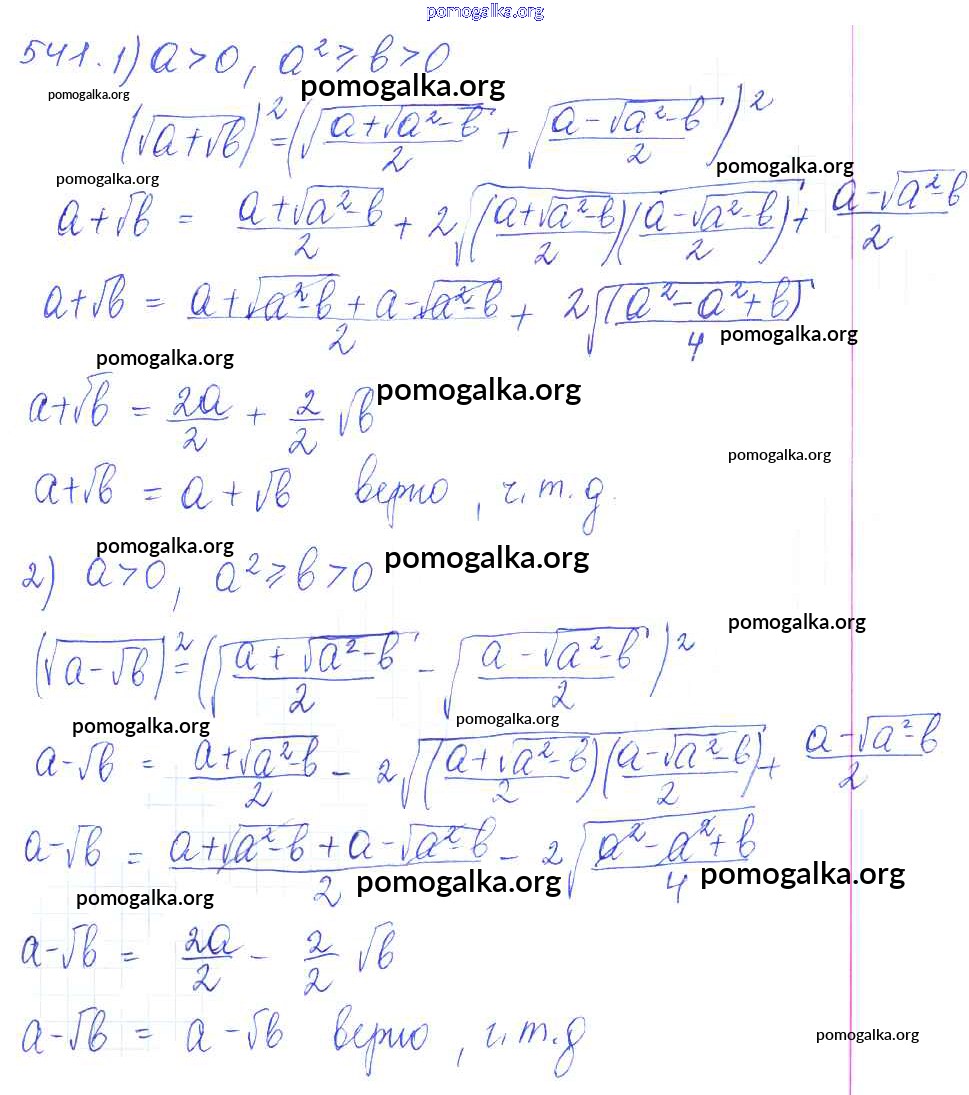 pomogalka.org
541. 1) a > 0, a² ⩾ b > 0
pomogalka.org pomogalka.org
(√(a + √b))² = (√((a + √(a² - b))/2) + √((a - √(a² - b))/2))²
pomogalka.org pomogalka.org
a + √b = (a + √(a² - b))/2 + 2√(((a + √(a² - b))/2)((a - √(a² - b))/2)) + (a - √(a² - b))/2
a + √b = (a + √(a² - b) + a - √(a² - b))/2 + 2√((a² - a² + b)/4)
pomogalka.org pomogalka.org
a + √b = 2a/2 + 2/2 √b
pomogalka.org
pomogalka.org
a + √b = a + √b верно, ч.т.д.
pomogalka.org pomogalka.org
2) a > 0, a² ⩾ b > 0
pomogalka.org
(√(a - √b))² = (√((a + √(a² - b))/2) - √((a - √(a² - b))/2))²
pomogalka.org pomogalka.org
a - √b = (a + √(a² - b))/2 - 2√(((a + √(a² - b))/2)((a - √(a² - b))/2)) + (a - √(a² - b))/2
a - √b = (a + √(a² - b) + a - √(a² - b))/2 - 2√((a² - a² + b)/4)
pomogalka.org pomogalka.org pomogalka.org
a - √b = 2a/2 - 2/2 √b
a - √b = a - √b верно, ч.т.д
pomogalka.org